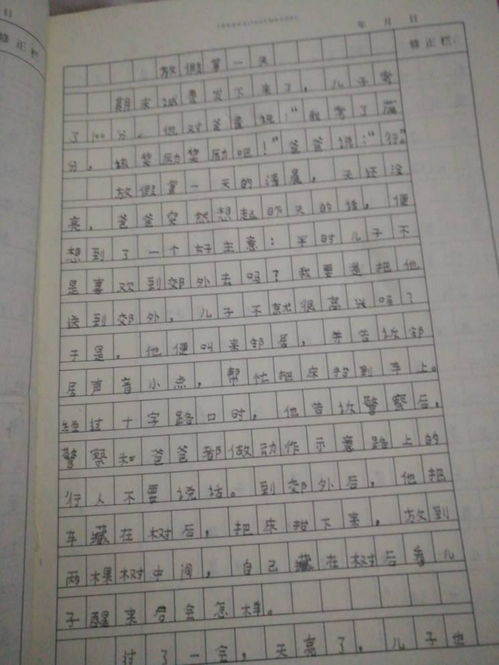 年 月 日
修正栏
日
修正栏:
放假第一天
期末试卷发下来了，儿子考
了100分。他对爸爸说："我考了满
分，快奖励奖励吧！"爸爸说："行。"
放假第一天的清晨，天还没
亮，爸爸突然想起昨天的话，便
想到了一个好主意：平时儿子不
是喜欢到郊外去吗？我要是把他
送到郊外，儿子不就很高兴吗？
于是，他便叫来邻居，并告诉邻
居声音小点，帮忙把床抬到车上。
经过十字路口时，他告诉警察后，
警察和爸爸都做动作示意路上的
行人不要说话。到郊外后，他把
车藏在树后，把床抬下来，放到
两棵树中间，自己藏在树后看儿
子醒来后会怎样。
过了一会，天亮了，儿子也